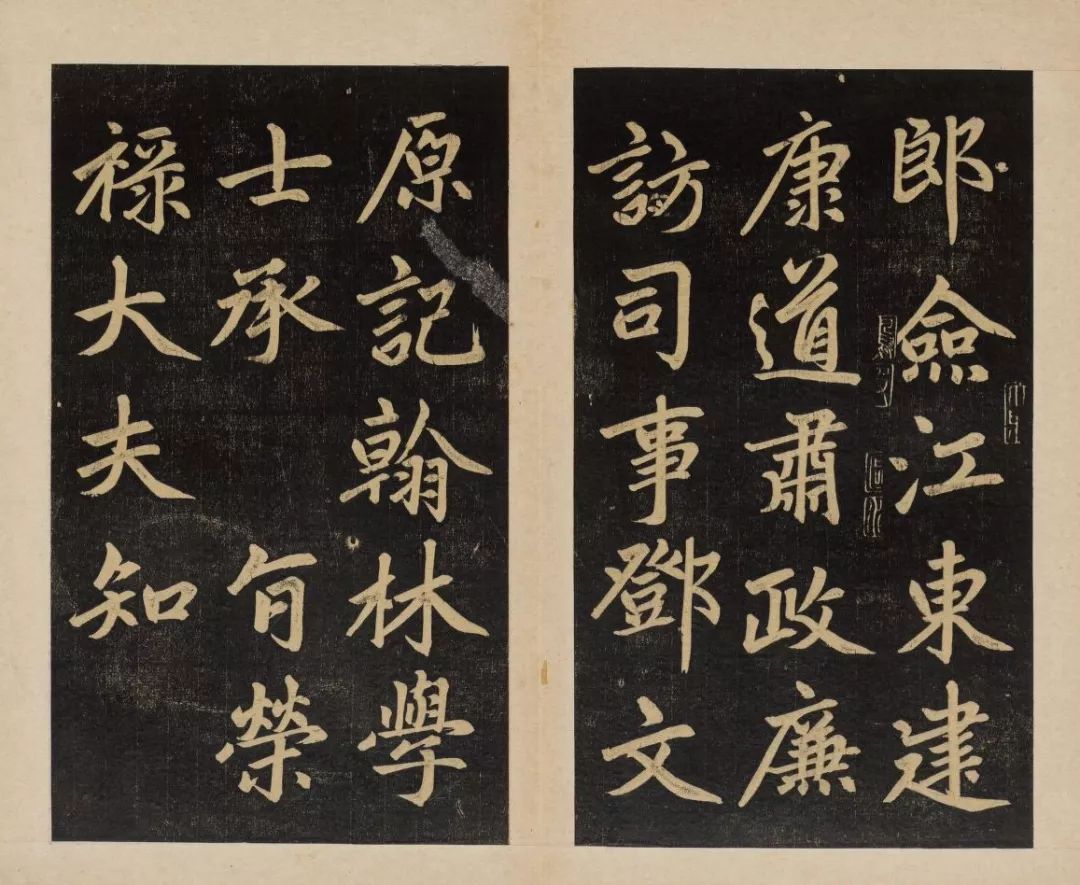 郎僉江東建
康道肅政廉
訪司事鄧文
原記翰林學
士承旨榮
祿大夫知